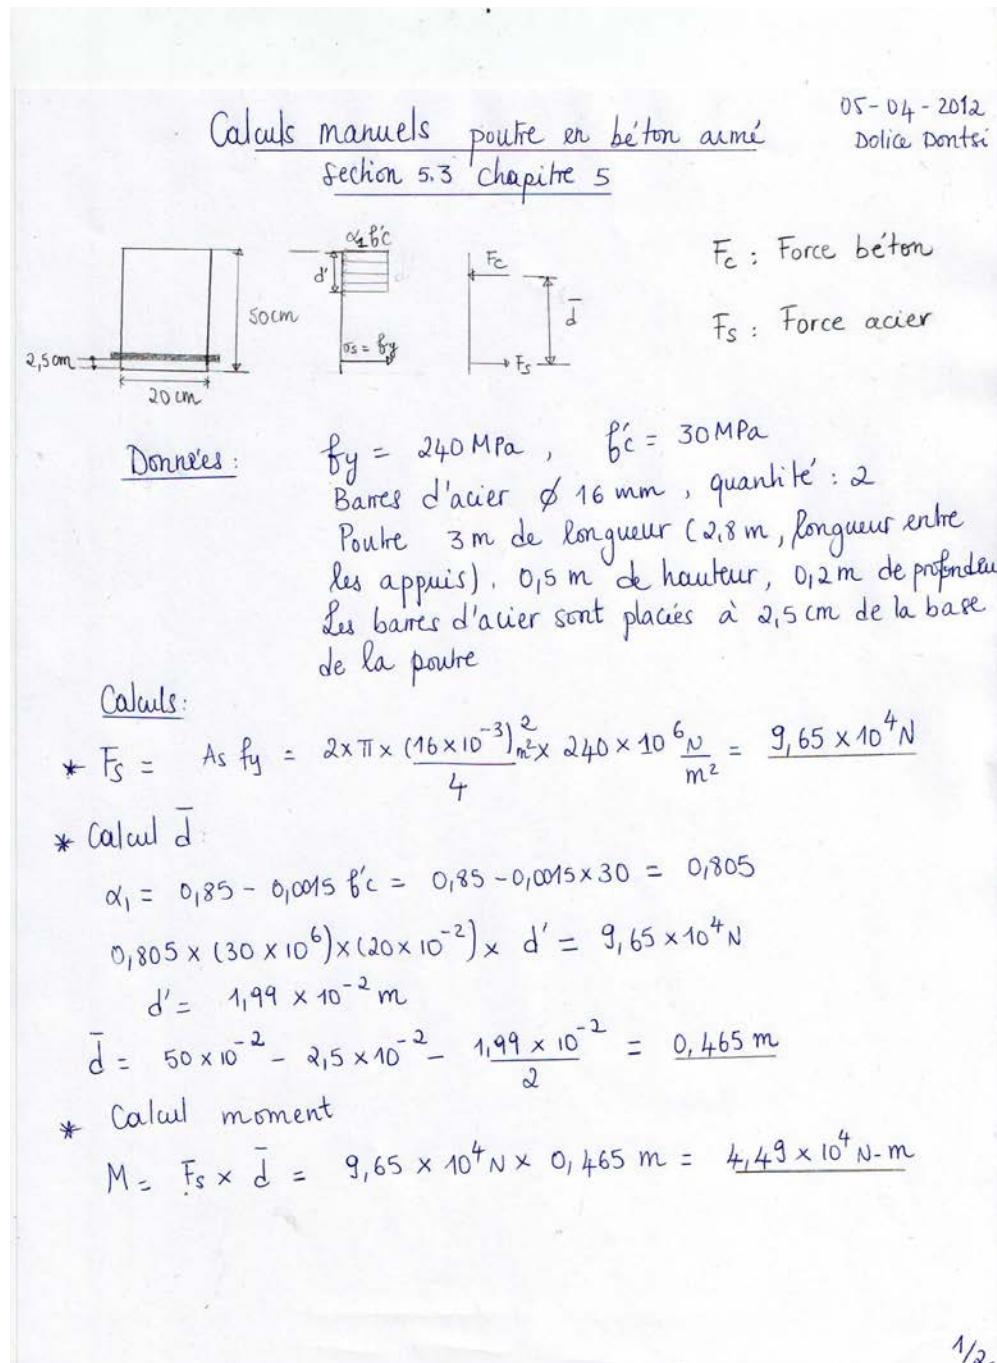 05-04-2012
Dolice Dontsi
Calculs manuels poutre en béton armé
Section 5.3 Chapitre 5
α₁f'c
d'
50cm
2,5cm
20 cm
σs = fy
Fc
d̄
Fs
Fc : Force béton
Fs : Force acier
Données : fy = 240 MPa , f'c = 30 MPa
Barres d'acier ϕ 16 mm , quantité : 2
Poutre 3m de longueur (2,8 m, longueur entre
les appuis). 0,5 m de hauteur, 0,2 m de profondeu
Les barres d'acier sont placées à 2,5 cm de la base
de la poutre
Calculs:
* Fs = As fy = 2 × π × (16 × 10⁻³)² m² / 4 × 240 × 10⁶ N/m² = 9,65 × 10⁴ N
* Calcul d̄ :
α₁ = 0,85 - 0,0015 f'c = 0,85 - 0,0015 × 30 = 0,805
0,805 × (30 × 10⁶) × (20 × 10⁻²) × d' = 9,65 × 10⁴ N
d' = 1,99 × 10⁻² m
d̄ = 50 × 10⁻² - 2,5 × 10⁻² - 1,99 × 10⁻² / 2 = 0,465 m
* Calcul moment
M = Fs × d̄ = 9,65 × 10⁴ N × 0,465 m = 4,49 × 10⁴ N-m
1/2